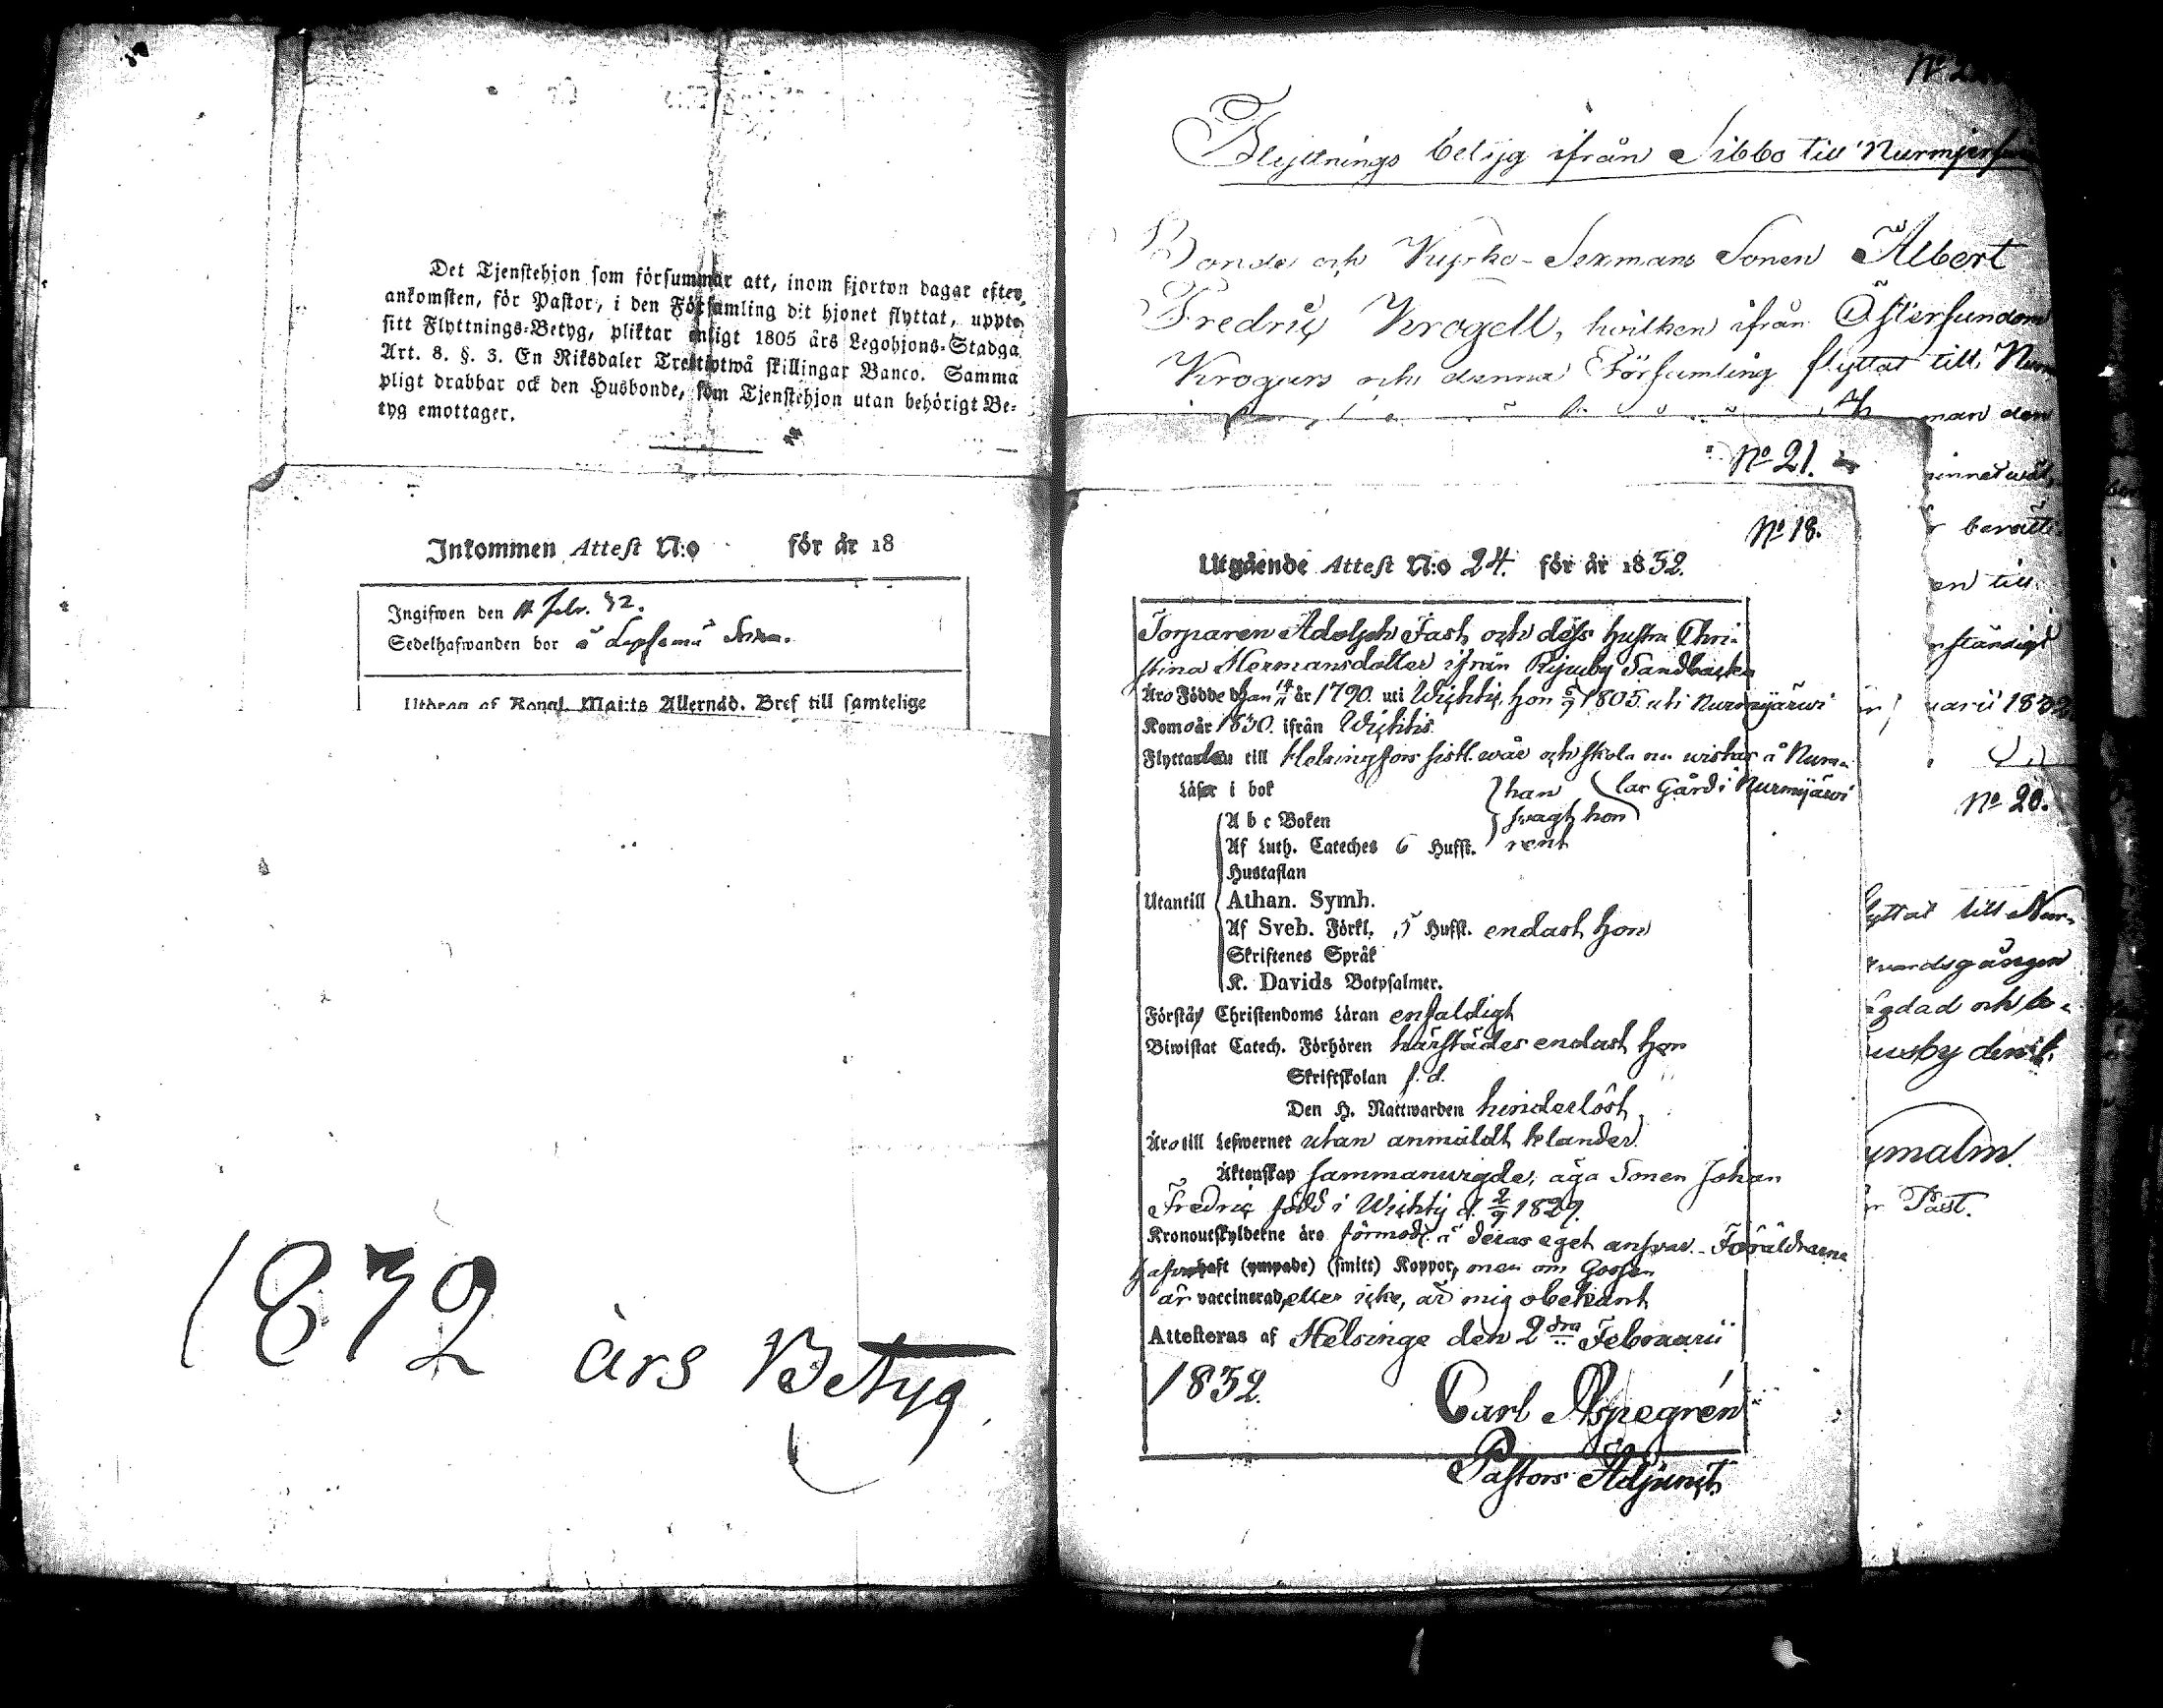 Det Tjenstehjon som försummar att, inom fjorton dagar efter
ankomsten, för Pastor, i den Församling dit hjonet flyttat, uppte
sitt Flyttnings-Betyg, pliktar enligt 1805 års Legohjons-Stadga
Art. 8. §. 3. En Riksdaler Trettiotwå skillingar Banco. Samma
pligt drabbar ock den Husbonde, som Tjenstehjon utan behörigt Be-
tyg emottager.
Inkommen Attest N:o för år 18
Ingifwen den febr. 32.
Sedelhafwanden bor å
Utdrag af Kongl. Maj:ts Allernåd. Bref till samtelige
1832 års Betyg
Flyttnings betyg ifrån Sibbo till
Bonde och Kyrko-Sexmans Sonen Albert
Fredric Krogell, hvilken ifrån Östersundom
Krogars och denna Församling flyttat till
man den
No 21.
No 18.
Utgående Attest N:o 24. för år 1832.
Torparen Adolph Fast och dess hustru Chri-
stina Hermansdotter ifrån Sandbacka
Äro Födde han år 1790. uti Wichtis, hon 1805. uti Nurmijärwi
Komo år 1830. ifrån Wichtis
Flyttade till Helsingfors sistl. wår och skola nu wistas å Numa-
Läser i bok han lar Gård i Nurmijärwi
A b c Boken swagt, hon
Af Luth. Cateches 6 Hufst. rent
Hustaflan
Utantill Athan. Symb.
Af Sveb. Förkl. 5 Hufst. endast hon
Skriftenes Språk
K. Davids Botpsalmer.
Förstå Christendoms Läran enfaldigt
Biwistat Catech. Förhören härstädes endast hon
Skriftskolan f. d.
Den H. Nattwarden hinderlöst.
Äro till Lefwernet utan anmäldt klander.
Äktenskap sammanwigde, äga Sonen Johan
Fredric född i Wichtis d. 2/9 1829.
Kronoutskylderne äro förmodl. å deras eget answar. Föräldrarne
haft (ympade) (smitt) Koppor, men om Gossen
är vaccinerad eller icke, är mig obekant
Attesteras af Helsinge den 2dra Februarii
1832.
Carl Aspegrén
Pastors Adjunct.
en till
1832
No 20.
flyttat till Nur-
och be-
Past.